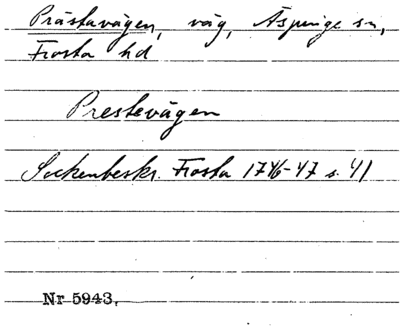 Prästavägen, väg, Äspinge sn,
Frosta hd
Prestevägen
Sockenbeskr. Frosta 1746-47 s. 41
Nr 5943.